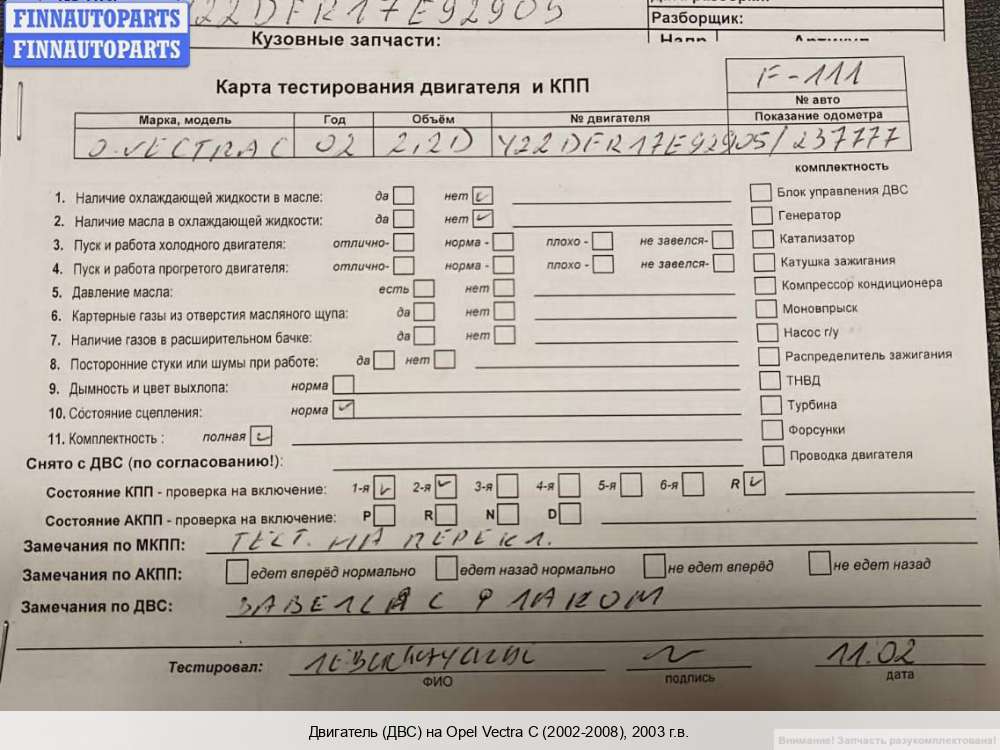 FINNAUTOPARTS
FINNAUTOPARTS
Y22DFR17E92905
Разборщик:
Кузовные запчасти:
Карта тестирования двигателя и КПП
F-111
№ авто
Марка, модель Год Объём № двигателя Показание одометра
O.VECTRA C 02 2,2D Y22DFR17E92905/237777
комплектность
1. Наличие охлаждающей жидкости в масле: да нет
Блок управления ДВС
2. Наличие масла в охлаждающей жидкости: да нет
Генератор
3. Пуск и работа холодного двигателя: отлично- норма - плохо - не завелся-
Катализатор
4. Пуск и работа прогретого двигателя: отлично- норма - плохо - не завелся-
Катушка зажигания
5. Давление масла: есть нет
Компрессор кондиционера
6. Картерные газы из отверстия масляного щупа: да нет
Моновпрыск
7. Наличие газов в расширительном бачке: да нет
Насос г/у
8. Посторонние стуки или шумы при работе: да нет
Распределитель зажигания
9. Дымность и цвет выхлопа: норма
ТНВД
10. Состояние сцепления: норма
Турбина
11. Комплектность : полная
Форсунки
Снято с ДВС (по согласованию!):
Проводка двигателя
Состояние КПП - проверка на включение: 1-я 2-я 3-я 4-я 5-я 6-я R
Состояние АКПП - проверка на включение: P R N D
Замечания по МКПП: ТЕСТ. НА ПЕРЕКЛ.
Замечания по АКПП: едет вперёд нормально едет назад нормально не едет вперёд не едет назад
Замечания по ДВС: ЗАВЕЛСЯ С ФЛАКОМ
Тестировал: 11.02
ФИО подпись дата
Двигатель (ДВС) на Opel Vectra C (2002-2008), 2003 г.в.
Внимание! Запчасть разукомплектована!